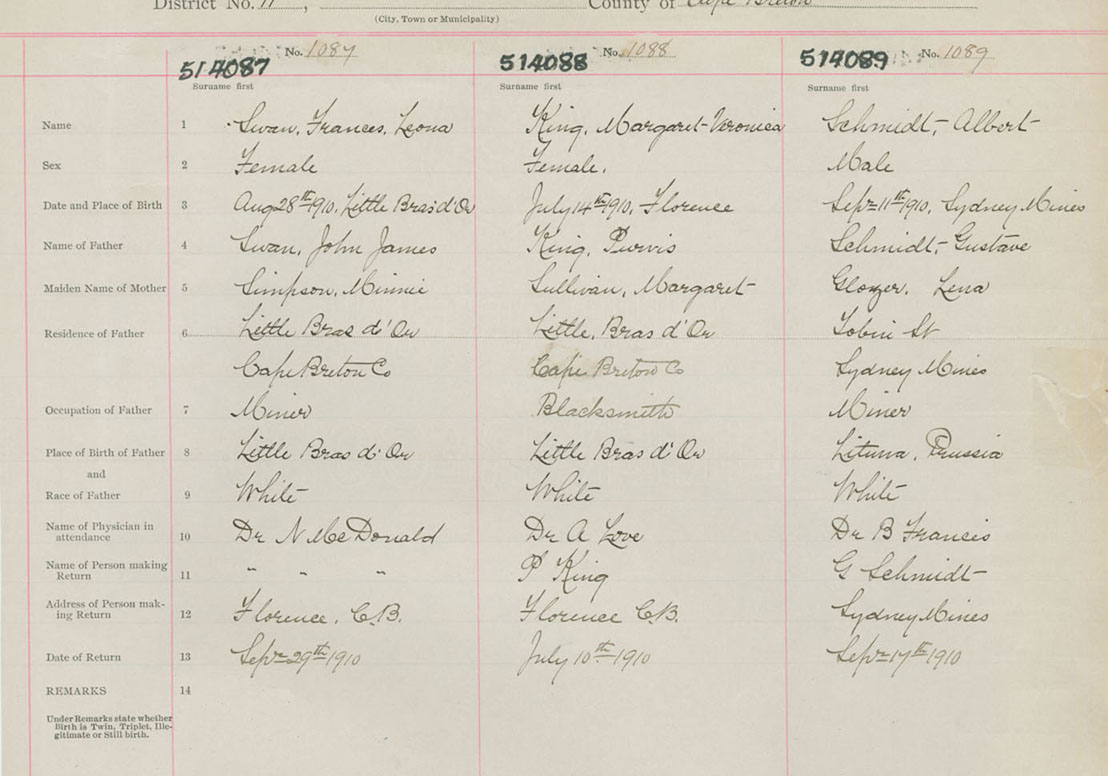 District No. 11, County of Cape Breton
(City, Town or Municipality)
No. 1087 No. 1088 No. 1089
514087 514088 514089
Surname first Surname first Surname first
Name 1 Swan, Frances, Leona King, Margaret-Veronica Schmidt, Albert
Sex 2 Female Female. Male
Date and Place of Birth 3 Aug 28th 1910, Little Bras d'Or July 14th 1910, Florence Sepr 11th 1910, Sydney Mines
Name of Father 4 Swan, John James King, Purvis Schmidt, Gustave
Maiden Name of Mother 5 Simpson, Minnie Sullivan, Margaret Lena
Residence of Father 6 Little Bras d'Or Little, Bras d'Or Tobin St
Cape Breton Co Cape Breton Co Sydney Mines
Occupation of Father 7 Miner Blacksmith Miner
Place of Birth of Father 8 Little Bras d'Or Little Bras d'Or Prussia
and
Race of Father 9 White White White
Name of Physician in
attendance 10 Dr N McDonald Dr A Love Dr B Francis
Name of Person making
Return 11 " " " P King G Schmidt
Address of Person mak-
ing Return 12 Florence, C.B. Florence C.B. Sydney Mines
Date of Return 13 Sepr 29th 1910 July 10th 1910 Sepr 17th 1910
REMARKS 14
Under Remarks state whether
Birth is Twin, Triplet, Ille-
gitimate or Still birth.